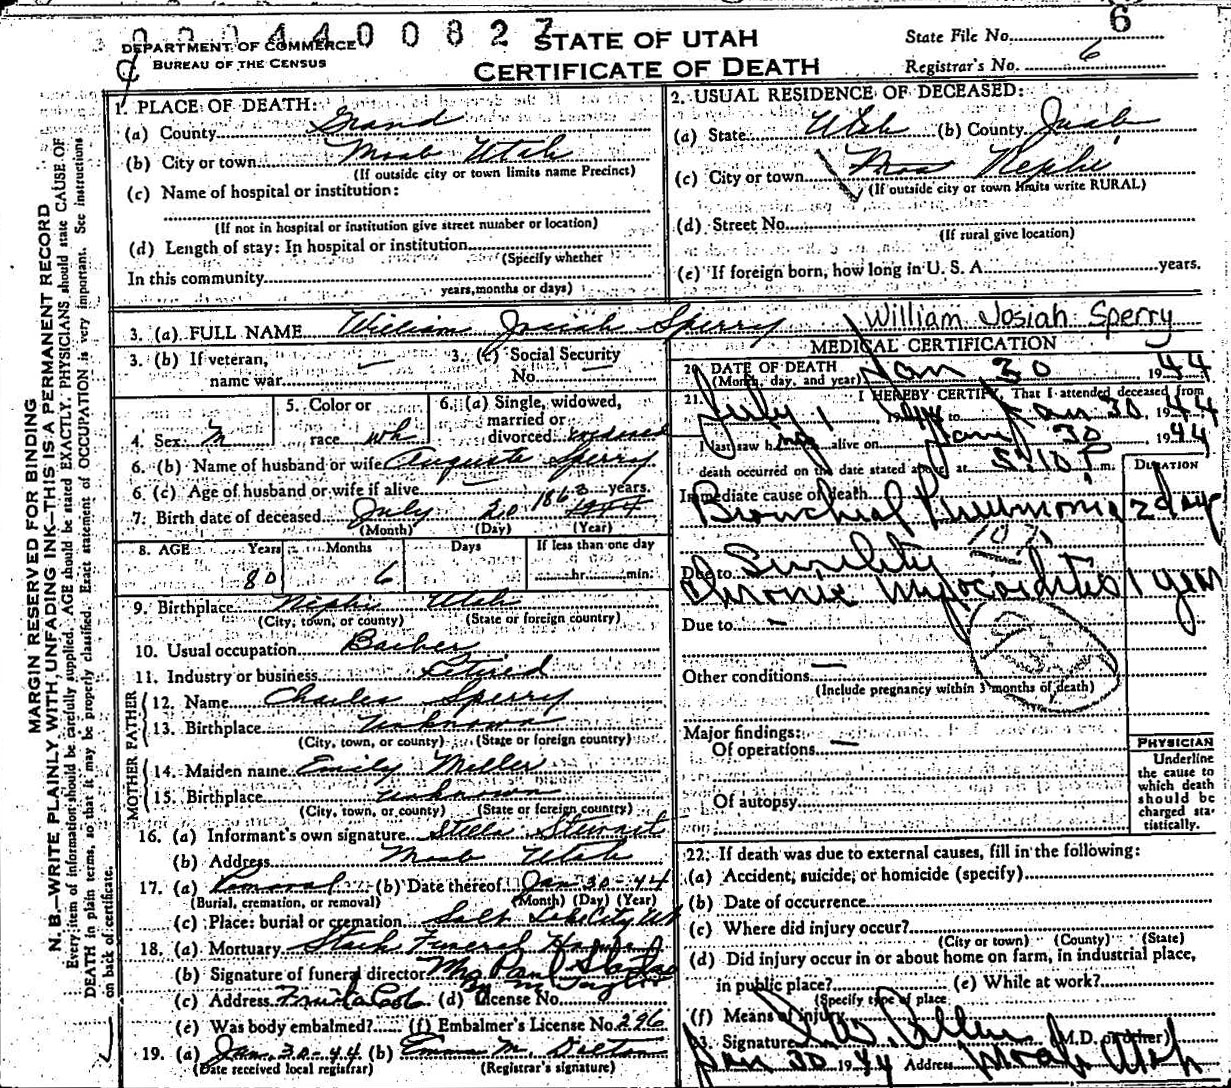 0004400827
6
DEPARTMENT OF COMMERCE
BUREAU OF THE CENSUS
STATE OF UTAH
CERTIFICATE OF DEATH
State File No.
Registrar's No. 6
MARGIN RESERVED FOR BINDING
N. B.—WRITE PLAINLY WITH UNFADING INK—THIS IS A PERMANENT RECORD
Every item of information should be carefully supplied. AGE should be stated EXACTLY. PHYSICIANS should state CAUSE OF
DEATH in plain terms, so that it may be properly classified. Exact statement of OCCUPATION is very important. See instructions
on back of certificate.
1. PLACE OF DEATH:
(a) County Grand
(b) City or town Moab Utah
(If outside city or town limits name Precinct)
(c) Name of hospital or institution:
(If not in hospital or institution give street number or location)
(d) Length of stay: In hospital or institution
(Specify whether
In this community
years, months or days)
2. USUAL RESIDENCE OF DECEASED:
(a) State Utah (b) County Juab
(c) City or town Nephi
(If outside city or town limits write RURAL)
(d) Street No.
(If rural give location)
(e) If foreign born, how long in U. S. A. years.
3. (a) FULL NAME William Josiah Sperry William Josiah Sperry
3. (b) If veteran, — 3. (c) Social Security
name war No. —
4. Sex M
5. Color or
race wh
6. (a) Single, widowed,
married or
divorced widowed
6. (b) Name of husband or wife Auguste Sperry
6. (c) Age of husband or wife if alive — years.
7. Birth date of deceased July 20 1863
(Month) (Day) (Year)
8. AGE Years Months Days If less than one day
80 6 hr. min.
9. Birthplace Nephi Utah
(City, town, or county) (State or foreign country)
10. Usual occupation Barber
11. Industry or business Retired
FATHER
12. Name Charles Sperry
13. Birthplace unknown
(City, town, or county) (State or foreign country)
MOTHER
14. Maiden name Emily Miller
15. Birthplace unknown
(City, town, or county) (State or foreign country)
16. (a) Informant's own signature Stella Stewart
(b) Address Moab Utah
17. (a) Removal (b) Date thereof Jan 30-44
(Burial, cremation, or removal) (Month) (Day) (Year)
(c) Place: burial or cremation Salt Lake City Ut
18. (a) Mortuary Funeral Home
(b) Signature of funeral director Paul
(c) Address Fruita Colo. (d) License No.
(e) Was body embalmed? (f) Embalmer's License No. 296
19. (a) Jan. 30-44 (b) Emma M. Dalton
(Date received local registrar) (Registrar's signature)
MEDICAL CERTIFICATION
20. DATE OF DEATH
(Month, day, and year) Jan 30 1944
21. I HEREBY CERTIFY, That I attended deceased from
July 1, to Jan 30 1944
I last saw him alive on Jan 30 1944
death occurred on the date stated above, at 5:10 P m.
DURATION
Immediate cause of death
Bronchial Pneumonia 2 days
107
Due to Senility
Chronic Myocarditis 1 year
Due to —
Other conditions —
(Include pregnancy within 3 months of death)
Major findings:
Of operations —
Of autopsy
PHYSICIAN
Underline
the cause to
which death
should be
charged sta-
tistically.
22. If death was due to external causes, fill in the following:
(a) Accident, suicide, or homicide (specify)
(b) Date of occurrence
(c) Where did injury occur?
(City or town) (County) (State)
(d) Did injury occur in or about home on farm, in industrial place,
in public place? (e) While at work?
(Specify type of place
(f) Means of injury
23. Signature Allen (M.D. or other)
Jan 30 1944 Address Moab Utah